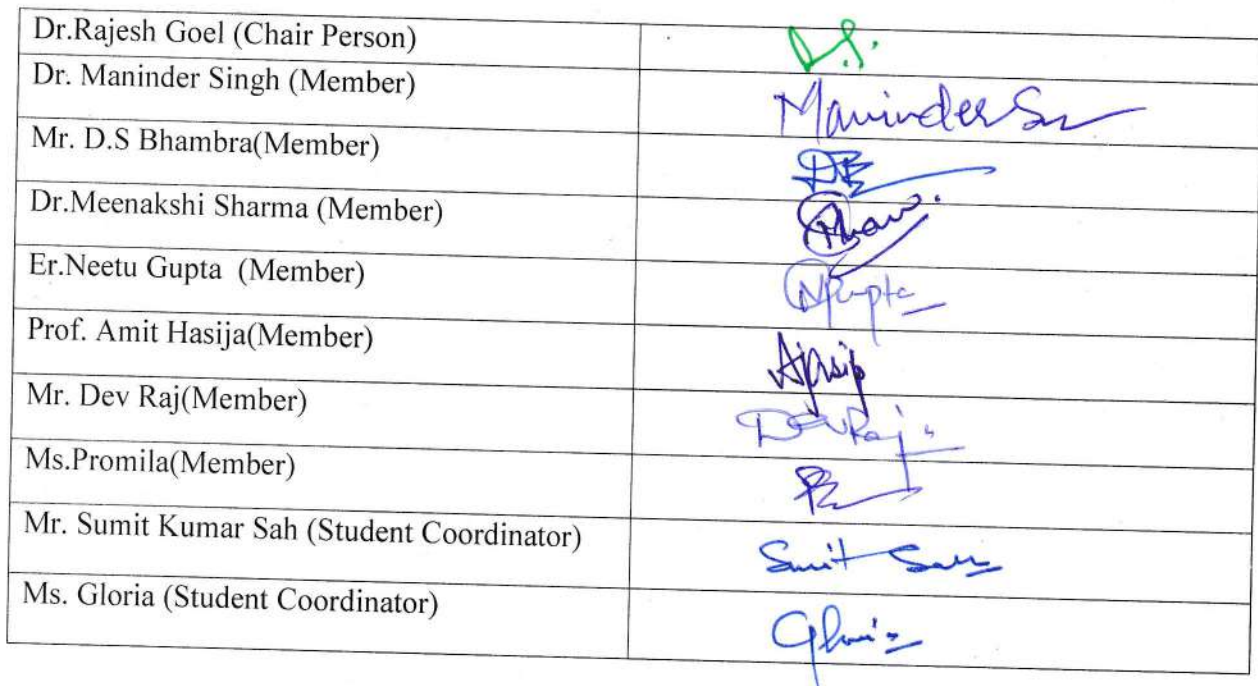 Dr.Rajesh Goel (Chair Person)
Dr. Maninder Singh (Member) Maninder
Mr. D.S Bhambra(Member)
Dr.Meenakshi Sharma (Member)
Er.Neetu Gupta (Member) NGupta
Prof. Amit Hasija(Member)
Mr. Dev Raj(Member) Dev Raj
Ms.Promila(Member)
Mr. Sumit Kumar Sah (Student Coordinator) Sumit Sah
Ms. Gloria (Student Coordinator) Gloria